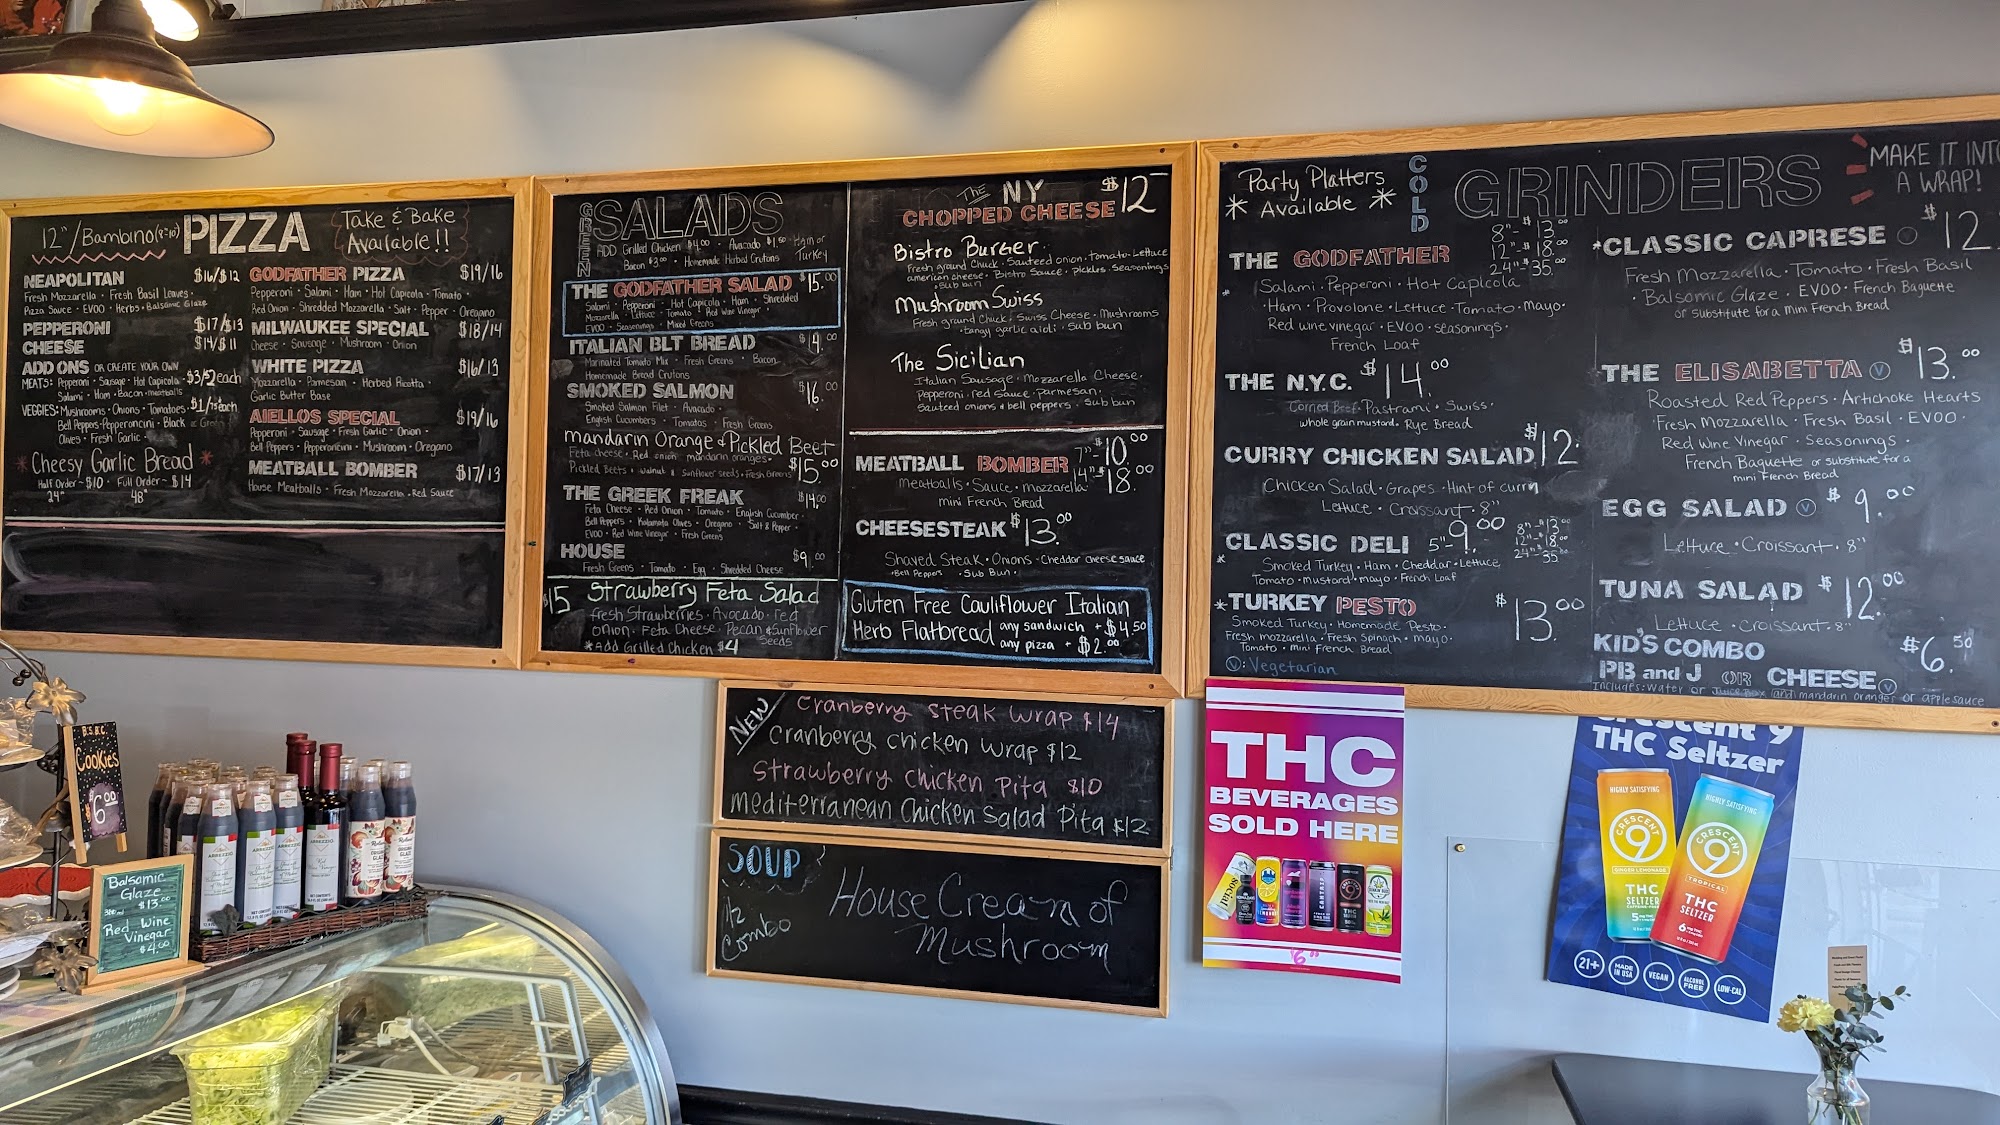 12"/Bambino(8"-10")
PIZZA
Take & Bake
Available!!
NEAPOLITAN $16/$12
Fresh Mozzarella · Fresh Basil Leaves ·
Pizza Sauce · EVOO · Herbs · Balsamic Glaze
PEPPERONI $17/$13
CHEESE $14/$11
ADD ONS OR CREATE YOUR OWN
MEATS: Pepperoni · Sausage · Hot Capicola · $3/$2 each
Salami · Ham · Bacon · meatballs
VEGGIES: Mushrooms · Onions · Tomatoes ·
Bell Peppers · Pepperoncini · Black
Olives · Fresh Garlic
* Cheesy Garlic Bread *
Half Order ~ $10 · Full Order ~ $14
24" 48"
GODFATHER PIZZA $19/16
Pepperoni · Salami · Ham · Hot Capicola · Tomato ·
Red Onion · Shredded Mozzarella · Salt · Pepper · Oregano
MILWAUKEE SPECIAL $18/14
Cheese · Sausage · Mushroom · Onion
WHITE PIZZA $16/13
Mozzarella · Parmesan · Herbed Ricotta ·
Garlic Butter Base
AIELLOS SPECIAL $19/16
Pepperoni · Sausage · Fresh Garlic · Onion ·
Bell Peppers · Pepperoncini · Mushroom · Oregano
MEATBALL BOMBER $17/13
House Meatballs · Fresh Mozzarella · Red Sauce
GREEN SALADS
ADD Grilled Chicken $4.00 · Avocado $1.50 · Ham or
Bacon $3.00 · Homemade Herbed Crutons Turkey
THE GODFATHER SALAD $15.00
Salami · Pepperoni · Hot Capicola · Ham · Shredded
Mozzarella · Lettuce · Tomato · Red Wine Vinegar ·
EVOO · Seasonings · Mixed Greens
ITALIAN BLT BREAD $14.00
Marinated Tomato Mix · Fresh Greens · Bacon
Homemade Bread Crutons
SMOKED SALMON $16.00
Smoked Salmon Filet · Avocado ·
English Cucumbers · Tomatoes · Fresh Greens
mandarin Orange & Pickled Beet
Feta cheese · Red onion · mandarin oranges · $15.00
Pickled Beets · walnut & sunflower seeds · Fresh Greens
THE GREEK FREAK $14.00
Feta Cheese · Red Onion · Tomato · English Cucumber ·
Bell Peppers · Kalamata Olives · Oregano · Salt & Pepper ·
EVOO · Red Wine Vinegar · Fresh Greens
HOUSE $9.00
Fresh Greens · Tomato · Egg · Shredded Cheese
$15 Strawberry Feta Salad
fresh Strawberries · Avocado · red
onion · Feta Cheese · Pecan & Sunflower
Seeds
*Add Grilled Chicken $4
THE NY $12
CHOPPED CHEESE
Bistro Burger
Fresh ground Chuck · Sauteed onion · Tomato · Lettuce
american cheese · Bistro Sauce · Pickles · Seasonings
· Sub bun
Mushroom Swiss
Fresh ground Chuck · Swiss Cheese · Mushrooms
· tangy garlic aioli · sub bun
The Sicilian
Italian Sausage · Mozzarella Cheese ·
Pepperoni · red sauce · parmesan ·
Sauteed onions & bell peppers · Sub bun
MEATBALL BOMBER 7"-10.00
14"-18.00
meatballs · Sauce · mozzarella
mini French Bread
CHEESESTEAK $13.00
Shaved Steak · Onions · Cheddar cheese sauce
· Bell Peppers · Sub Bun ·
Gluten Free Cauliflower Italian
Herb Flatbread any sandwich + $4.50
any pizza + $2.00
Party Platters
* Available *
COLD GRINDERS
MAKE IT INTO
A WRAP!
THE GODFATHER 8"-$13.00
12"-$18.00
24"-$35.00
Salami · Pepperoni · Hot Capicola
· Ham · Provolone · Lettuce · Tomato · Mayo ·
Red wine vinegar · EVOO · seasonings ·
French Loaf
THE N.Y.C. $14.00
Corned Beef · Pastrami · Swiss ·
whole grain mustard · Rye Bread
CURRY CHICKEN SALAD $12.
Chicken Salad · Grapes · Hint of curry
Lettuce · Croissant · 8"
CLASSIC DELI 5"-9.00 8"-$13.00
12"-$18.00
24"-$35.00
* Smoked Turkey · Ham · Cheddar · Lettuce,
Tomato · mustard · mayo · French Loaf
*TURKEY PESTO $13.00
Smoked Turkey · Homemade Pesto ·
Fresh mozzarella · Fresh Spinach · mayo ·
Tomato · mini French Bread
V: Vegetarian
*CLASSIC CAPRESE V $12.
Fresh Mozzarella · Tomato · Fresh Basil
· Balsamic Glaze · EVOO · French Baguette
or substitute for a mini French Bread
THE ELISABETTA V $13.00
Roasted Red Peppers · Artichoke Hearts
· Fresh Mozzarella · Fresh Basil · EVOO ·
Red Wine Vinegar · Seasonings ·
French Baguette or substitute for a
mini French Bread
EGG SALAD V $9.00
Lettuce · Croissant · 8"
TUNA SALAD $12.00
Lettuce · croissant · 8"
KID'S COMBO $6.50
PB and J OR CHEESE V
Includes: Water or Juice Box and mandarin oranges or applesauce
NEW
Cranberry steak wrap $14
Cranberry chicken wrap $12
Strawberry chicken Pita $10
mediterranean Chicken Salad Pita $12
SOUP
1/2
Combo
House Cream of
Mushroom
THC
BEVERAGES
SOLD HERE
$6
Crescent 9
THC Seltzer
HIGHLY SATISFYING
CRESCENT
9
GINGER LEMONADE
THC
SELTZER
5mg THC
HIGHLY SATISFYING
CRESCENT
9
TROPICAL
THC
SELTZER
6mg THC
21+
MADE
IN USA
VEGAN
ALCOHOL
FREE
LOW-CAL
B.S.B.C.
Cookies
$6.00
Balsamic
Glaze
$13.00
Red Wine
Vinegar
$4.00